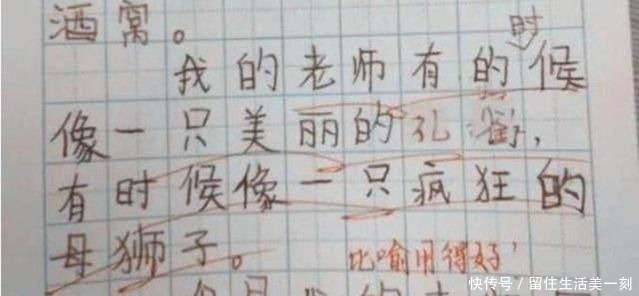 酒窝。
时
我的老师有的候
像一只美丽的孔雀,
有时候像一只疯狂的
母狮子。 比喻用得好,
快传号 / 留住生活美一刻